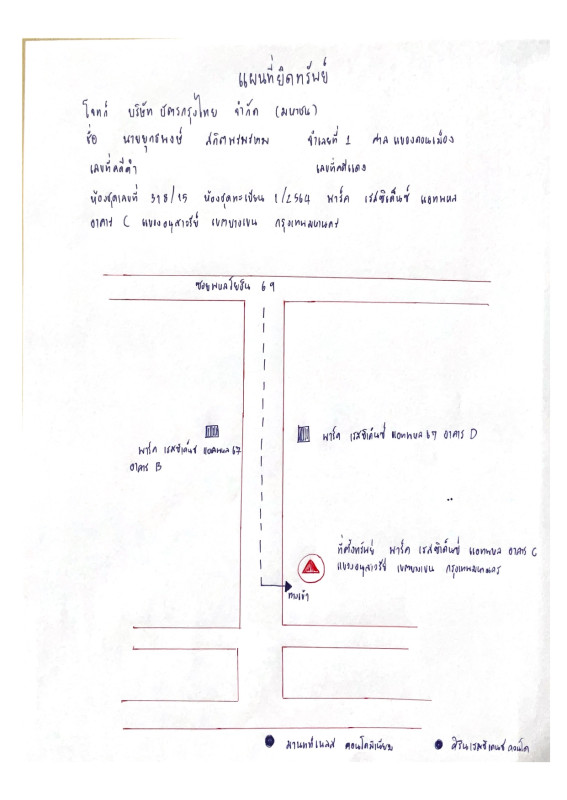 แผนที่ยึดทรัพย์
โจทก์ บริษัท บัตรกรุงไทย จำกัด (มหาชน)
ชื่อ นายยุทธพงษ์ จำเลยที่ 1 ศาล แขวงดอนเมือง
เลขที่คดีดำ เลขที่คดีแดง
ห้องชุดเลขที่ 318/15 ห้องชุดทะเบียน 1/2564 พาร์ค เรสซิเด็นซ์ แอทพหล
อาคาร C แขวงอนุสาวรีย์ เขตบางเขน กรุงเทพมหานคร
ซอยพหลโยธิน 69
พาร์ค เรสซิเด็นซ์ แอทพหล 67
อาคาร B
พาร์ค เรสซิเด็นซ์ แอทพหล 67 อาคาร D
ที่ตั้งทรัพย์ พาร์ค เรสซิเด็นซ์ แอทพหล อาคาร C
แขวงอนุสาวรีย์ เขตบางเขน กรุงเทพมหานคร
ทางเข้า
คอนโดมิเนียม
คอนโด